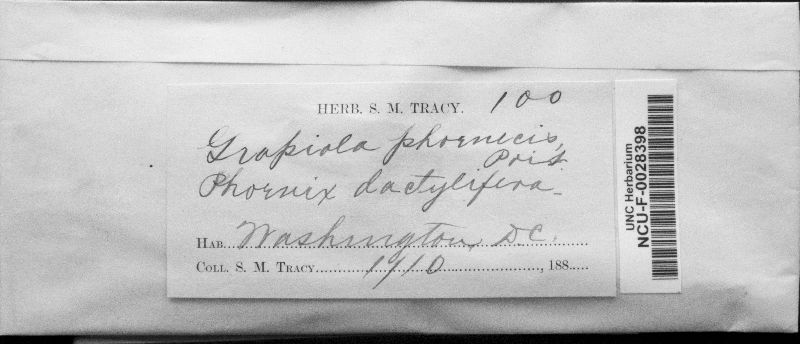 HERB. S. M. TRACY. 100
Grapiola phoenecis,
Poit
Phoenix dactylifera
HAB. Washington, D.C.
COLL. S. M. TRACY. 1/10, 188
UNC Herbarium
NCU-F-0028398